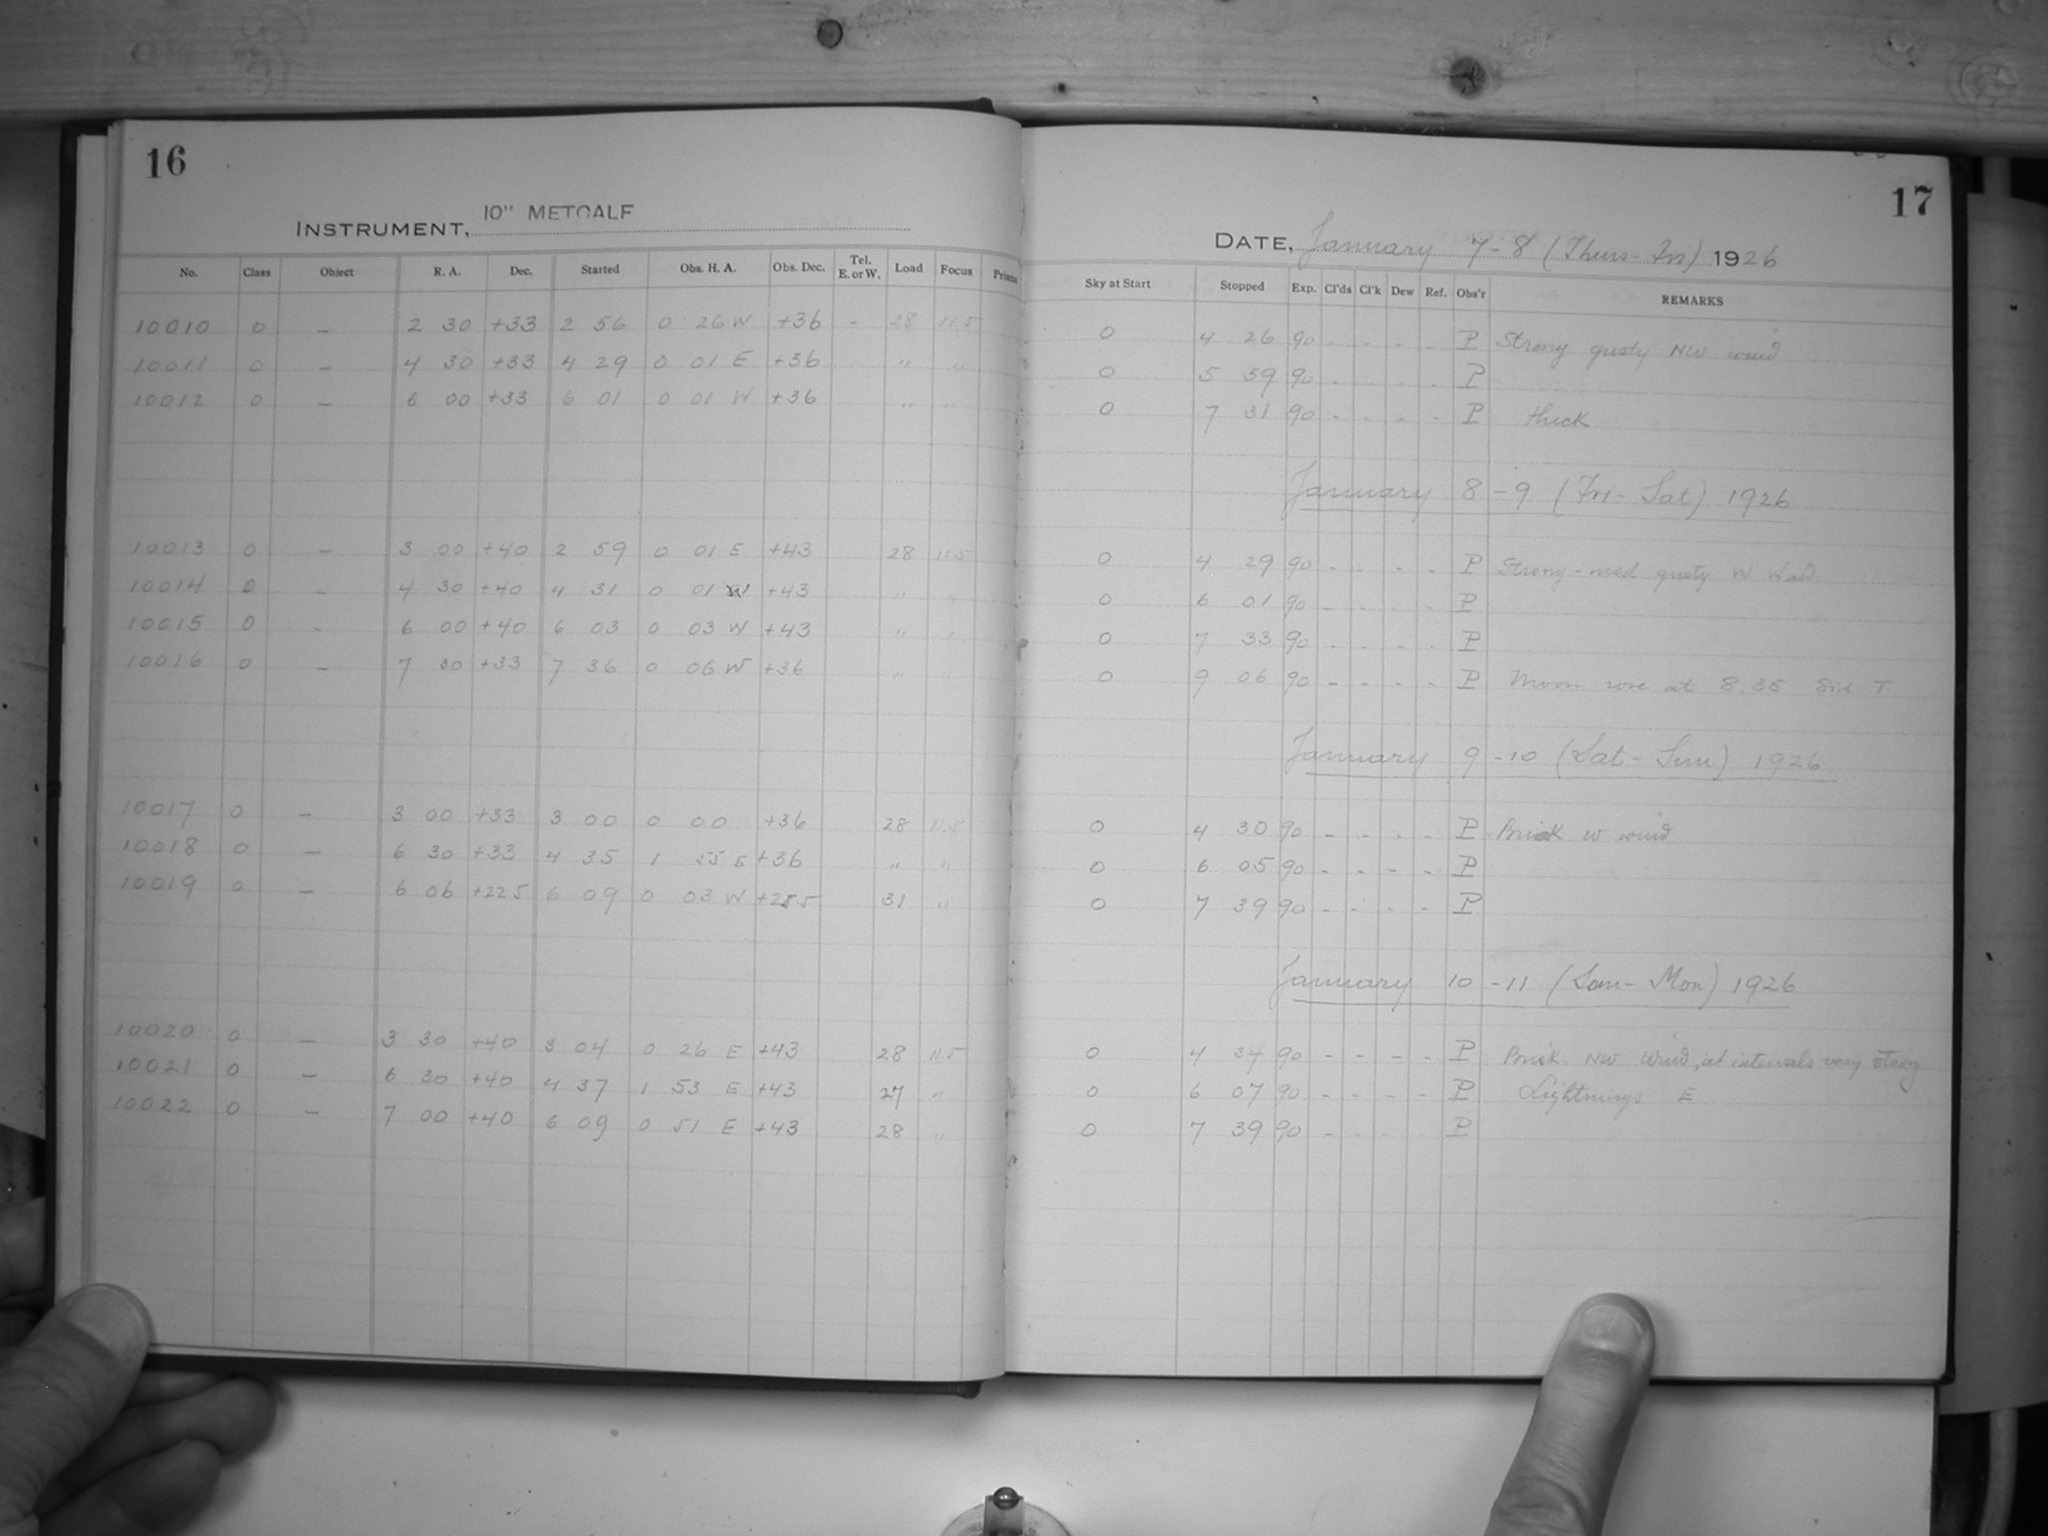 16
INSTRUMENT, 10" METCALF
No. Class Object R. A. Dec. Started Obs. H. A. Obs. Dec. Tel. E. or W. Load Focus Prisms
10010 0 – 2 30 +33 2 56 0 26 W +36 - 28 11.5
10011 0 – 4 30 +33 4 29 0 01 E +36 " "
10012 0 – 6 00 +33 6 01 0 01 W +36 " "
10013 0 – 3 00 +40 2 59 0 01 E +43 28 11.5
10014 0 – 4 30 +40 4 31 0 01 W +43 " "
10015 0 – 6 00 +40 6 03 0 03 W +43 " "
10016 0 – 7 30 +33 7 36 0 06 W +36 " "
10017 0 – 3 00 +33 3 00 0 00 +36 28 11.5
10018 0 – 6 30 +33 4 35 1 55 E +36 " "
10019 0 – 6 06 +22.5 6 09 0 03 W +25.5 31 "
10020 0 – 3 30 +40 3 04 0 26 E +43 28 11.5
10021 0 – 6 30 +40 4 37 1 53 E +43 27 "
10022 0 – 7 00 +40 6 09 0 51 E +43 28 "
17
DATE, January 7-8 (Thurs-Fri) 1926
Sky at Start Stopped Exp. Cl'ds Cl'k Dew Ref. Obs'r REMARKS
0 4 26 90 - - - - P Strong gusty NW wind
0 5 59 90 - - - - P
0 7 31 90 - - - - P thick
January 8-9 (Fri-Sat) 1926
0 4 29 90 - - - - P Strong-med gusty W Wind
0 6 01 90 - - - - P
0 7 33 90 - - - - P
0 9 06 90 - - - - P Moon rose at 8:35 Sid T
January 9-10 (Sat-Sun) 1926
0 4 30 90 - - - - P Brisk W wind
0 6 05 90 - - - - P
0 7 39 90 - - - - P
January 10-11 (Sun-Mon) 1926
0 4 34 90 - - - - P Brisk NW Wind, at intervals very strong
0 6 07 90 - - - - P Lightnings E
0 7 39 90 - - - - P